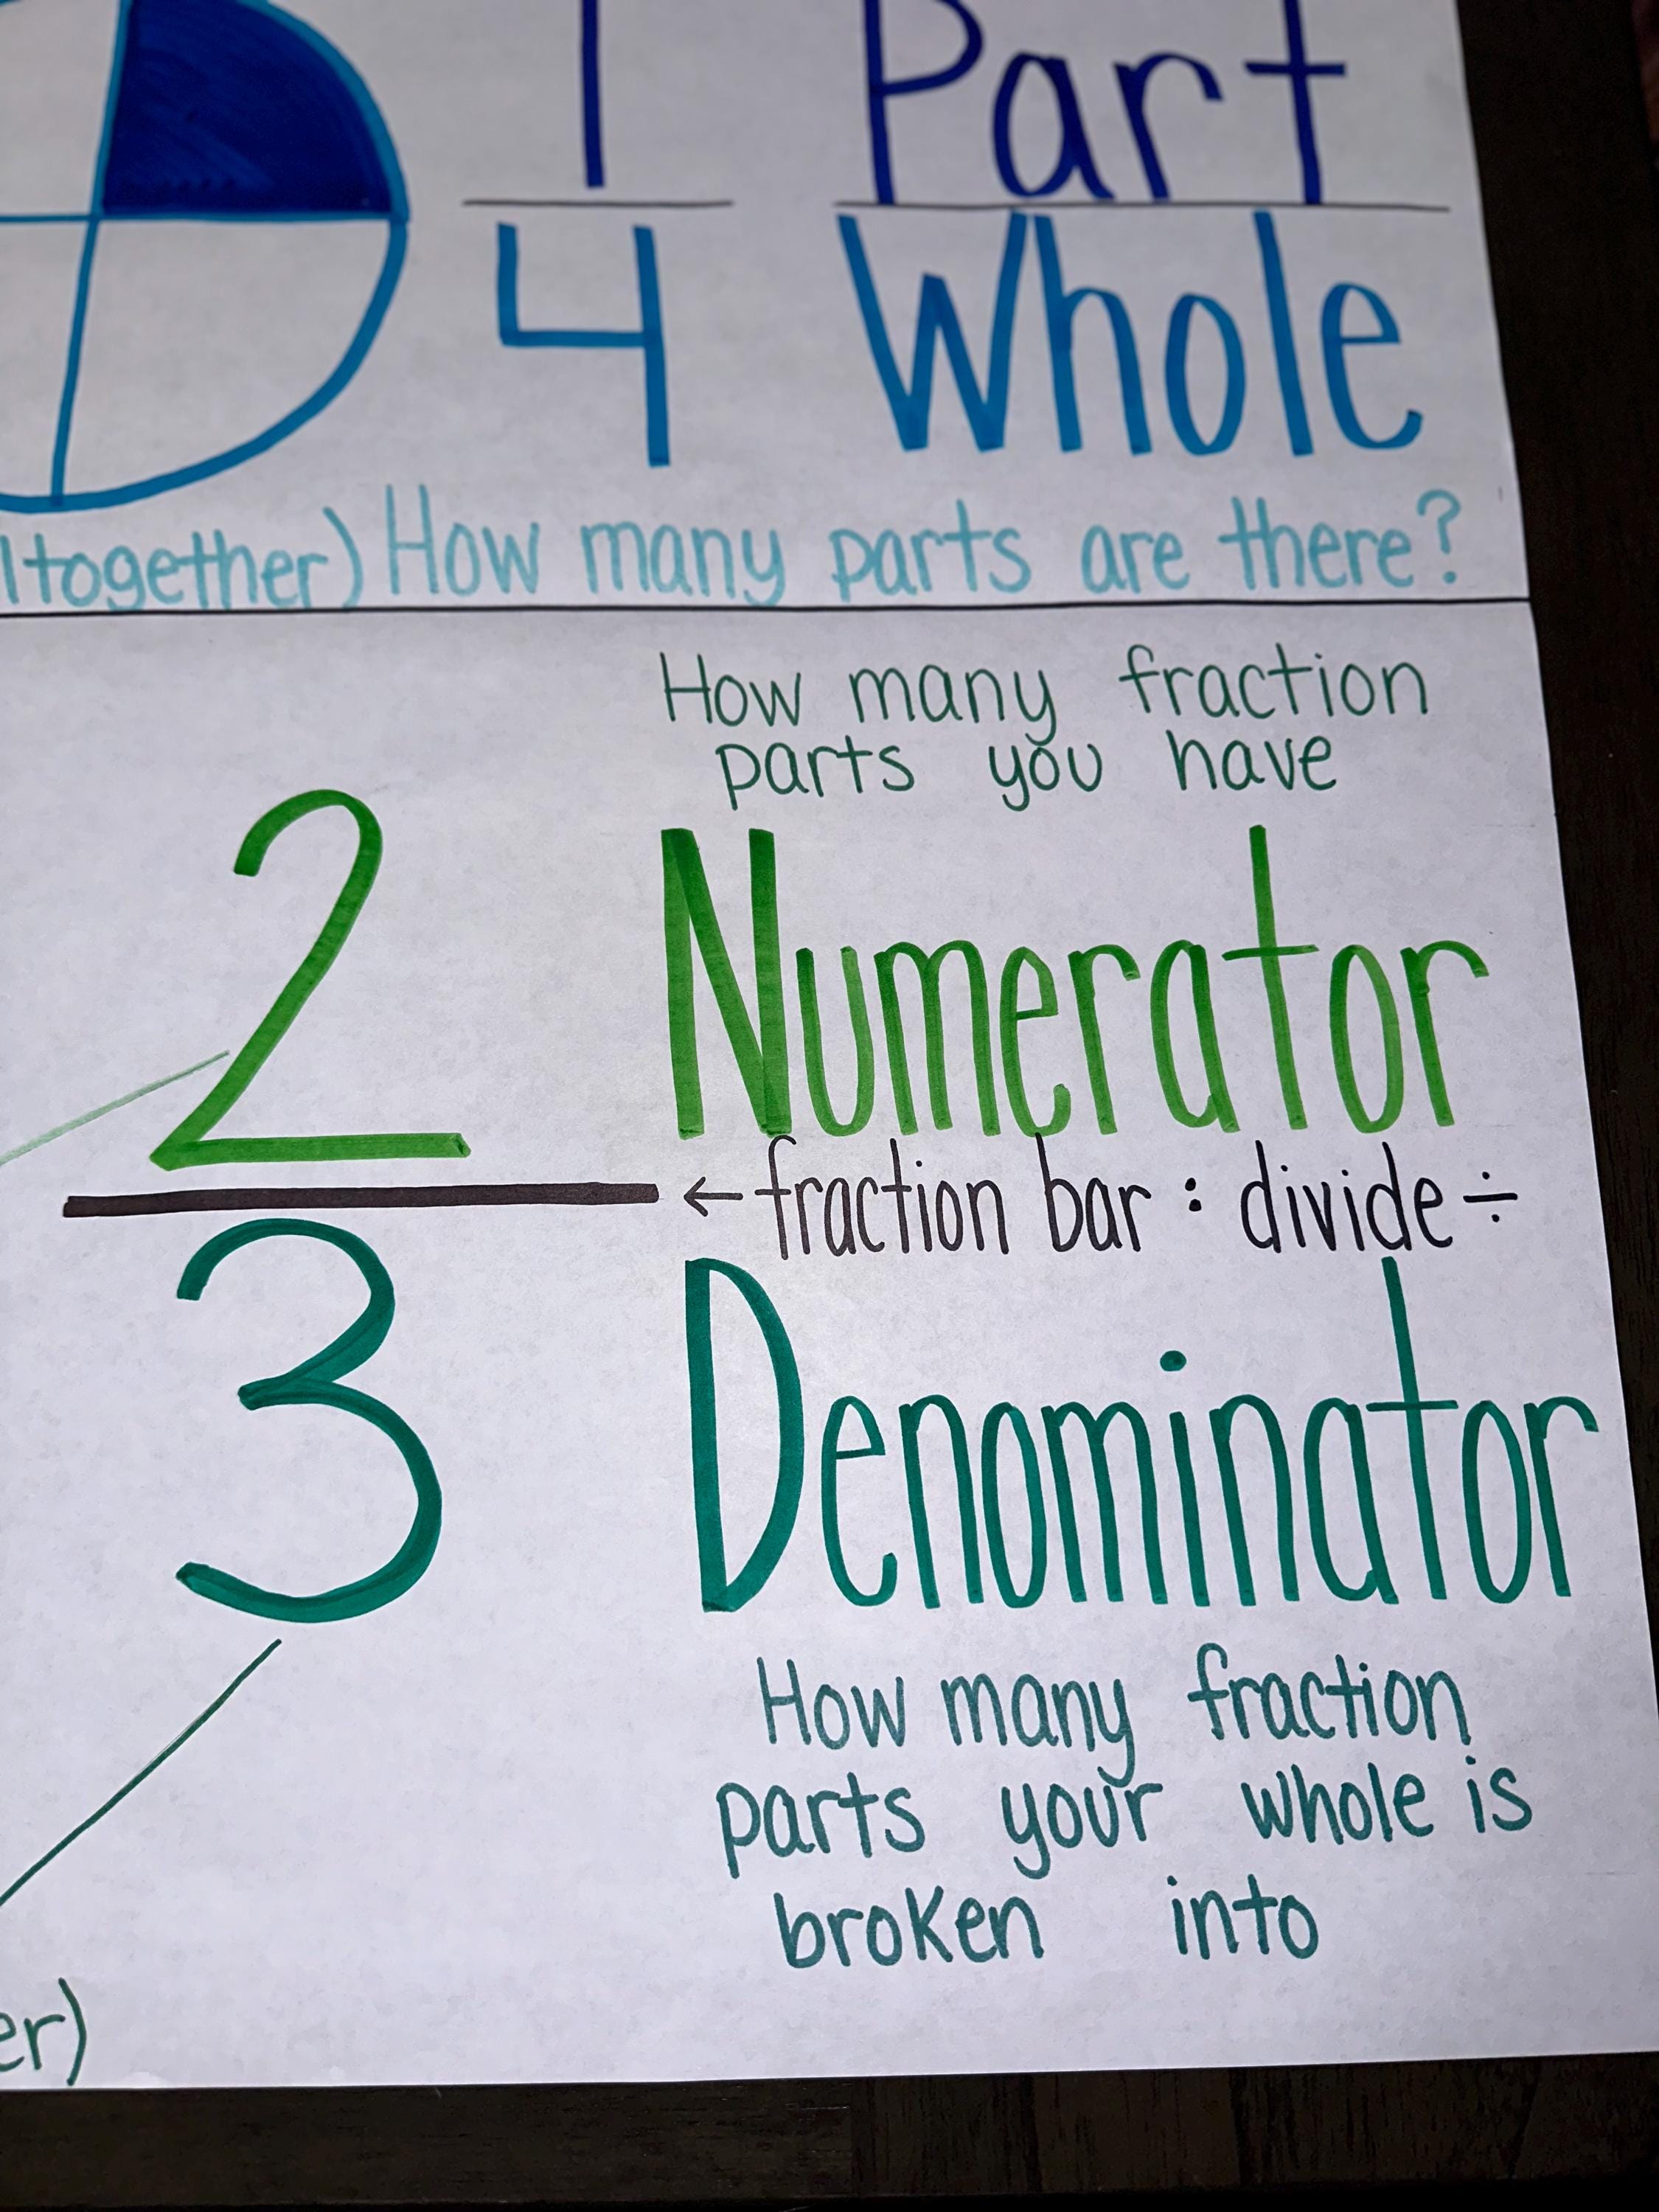 1 Part
4 Whole
ltogether) How many parts are there?
How many fraction
parts you have
2 Numerator
← fraction bar : divide ÷
3 Denominator
How many fraction
parts your whole is
broken into
er)